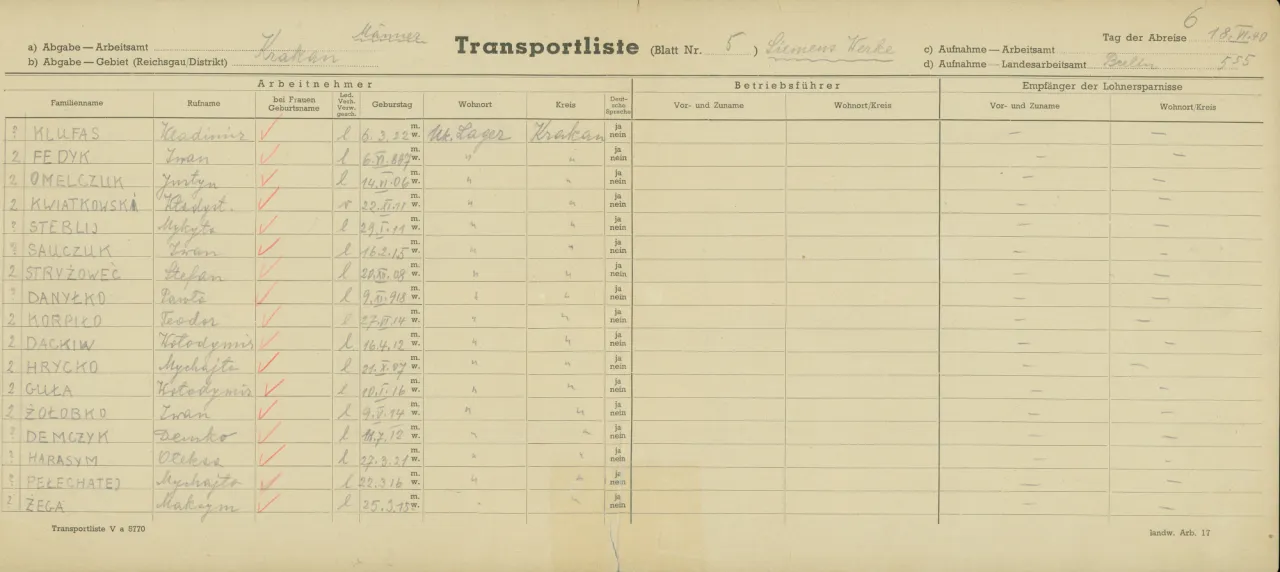 6
Männer
a) Abgabe — Arbeitsamt Krakau
b) Abgabe — Gebiet (Reichsgau/Distrikt)
Transportliste (Blatt Nr. 5) Siemens Werke
Tag der Abreise 18.VI.40
c) Aufnahme — Arbeitsamt
d) Aufnahme — Landesarbeitsamt Berlin 555
Arbeitnehmer Betriebsführer Empfänger der Lohnersparnisse
Familienname Rufname bei Frauen Geburtsname Led. Verh. Verw. gesch. Geburtstag Wohnort Kreis Deutsche Sprache Vor- und Zuname Wohnort/Kreis Vor- und Zuname Wohnort/Kreis
? KLUFAS Wladimir ✓ l 6.3.22 m. w. Uk. Lager Krakau ja nein — —
2 FEDYK Iwan ✓ l 6.VI.887 m. w. " " ja nein — —
2 OMELCZUK Justyn ✓ l 14.VI.06 m. w. " " ja nein — —
2 KWIATKOWSKI Władysł. ✓ v 22.XI.11 m. w. " " ja nein — —
? STEBLIJ Mykyta ✓ l 29.I.11 m. w. " " ja nein — —
? SAUCZUK Iwan ✓ l 16.2.15 m. w. " " ja nein — —
2 STRYŻOWEĆ Stefan ✓ l 20.XII.08 m. w. " " ja nein — —
? DANYŁKO Pawło ✓ l 9.XI.918 m. w. " " ja nein — —
2 KORPIŁO Teodor ✓ l 27.VI.14 m. w. " " ja nein — —
2 DACKIW Wołodymir ✓ l 16.4.12 m. w. " " ja nein — —
2 HRYCKO Mychajło ✓ l 21.X.97 m. w. " " ja nein — —
2 GUŁA Wołodymir ✓ l 10.I.16 m. w. " " ja nein — —
2 ŻOŁOBKO Iwan ✓ l 9.V.14 m. w. " " ja nein — —
? DEMCZYK Demko ✓ l 11.7.12 m. w. " " ja nein — —
? HARASYM Oleksa ✓ l 27.3.21 m. w. " " ja nein — —
? PEŁECHATEJ Mychajło ✓ l 22.3.16 m. w. " " ja nein — —
? ŻEGA Maksym ✓ l 25.3.15 m. w. " " ja nein — —
Transportliste V a 5770 landw. Arb. 17